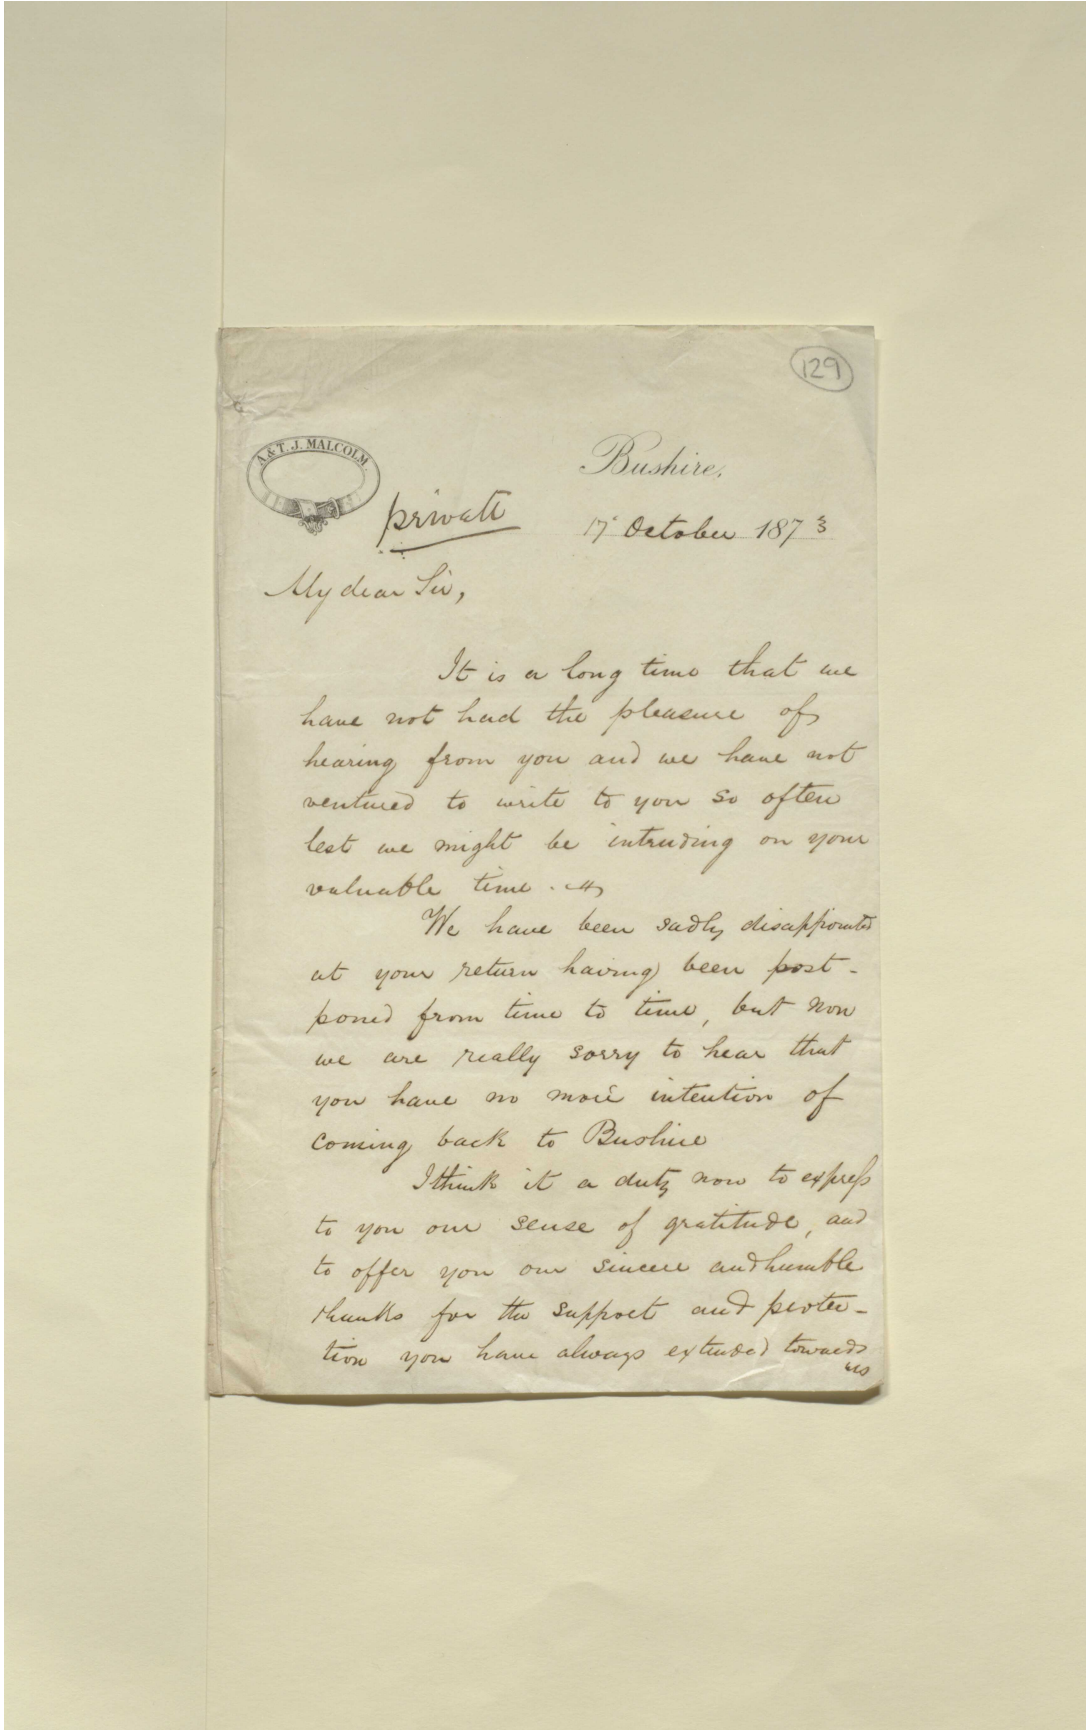 129
A. & T. J. MALCOLM
Bushire,
private
17 October 1873
My dear Sir,
It is a long time that we
have not had the pleasure of
hearing from you and we have not
ventured to write to you so often
lest we might be intruding on your
valuable time.
We have been sadly disappointed
at your return having been post-
poned from time to time, but now
we are really sorry to hear that
you have no more intention of
coming back to Bushire
I think it a duty now to express
to you our sense of gratitude, and
to offer you our sincere and humble
thanks for the support and protec-
tion you have always extended towards
us